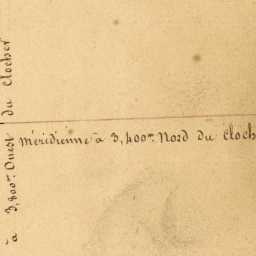 Méridienne à 3,400m Nord du Cloch
à 3,800m Ouest du Clocher